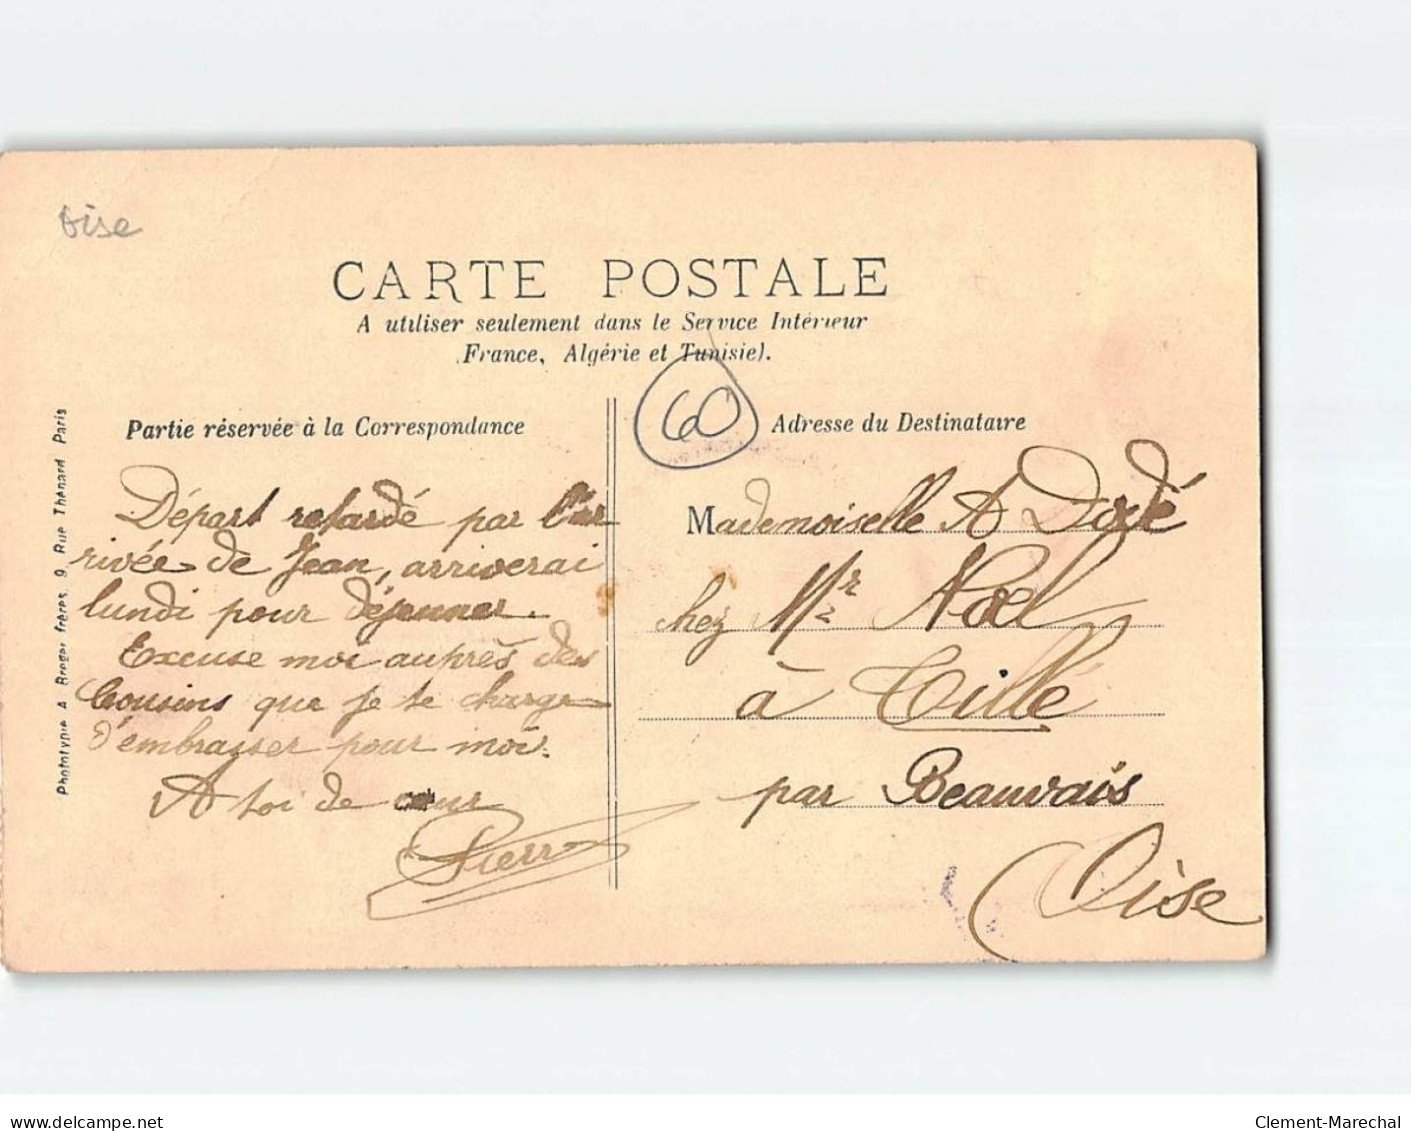 Oise
CARTE POSTALE
A utiliser seulement dans le Service Intérieur
(France, Algérie et Tunisie).
60
Partie réservée à la Correspondance
Départ retardé par l'ar
rivée de Jean, arriverai
lundi pour déjeuner.
Excuse moi auprès des
Cousins que je te charge
d'embrasser pour moi.
A toi de cœur
Pierre
Phototypie A Breger frères, 9, Rue Thénard Paris
Adresse du Destinataire
Mademoiselle A Dodé
chez Mr Noel
à Tillé
par Beauvais
Oise
delcampe.net
Clement-Marechal